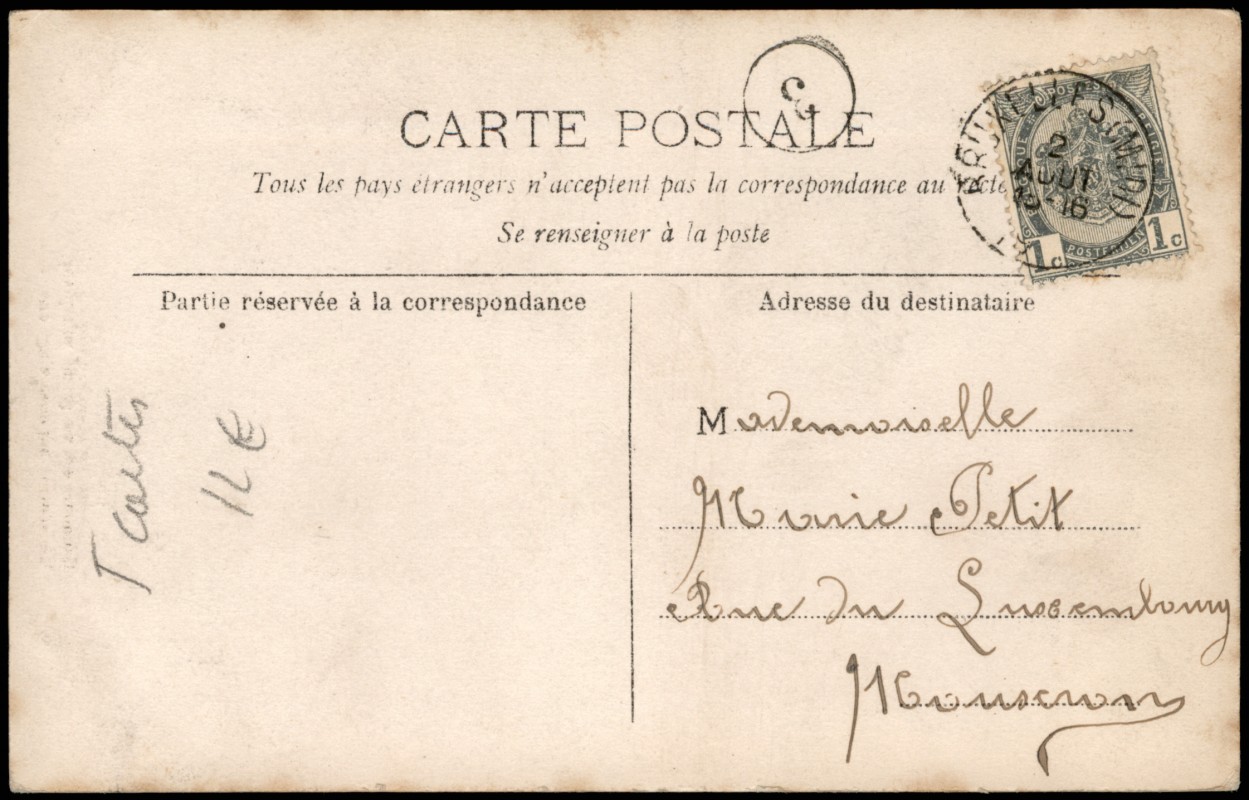 3
CARTE POSTALE
Tous les pays étrangers n'acceptent pas la correspondance au recto
Se renseigner à la poste
BRUXELLES (MIDI)
2
AOUT
15-16
POSTES
POSTERIJEN
1c 1c
Partie réservée à la correspondance
Adresse du destinataire
Mademoiselle
Marie Petit
Rue du Luxembourg
Mouscron
7 cartes
12 €